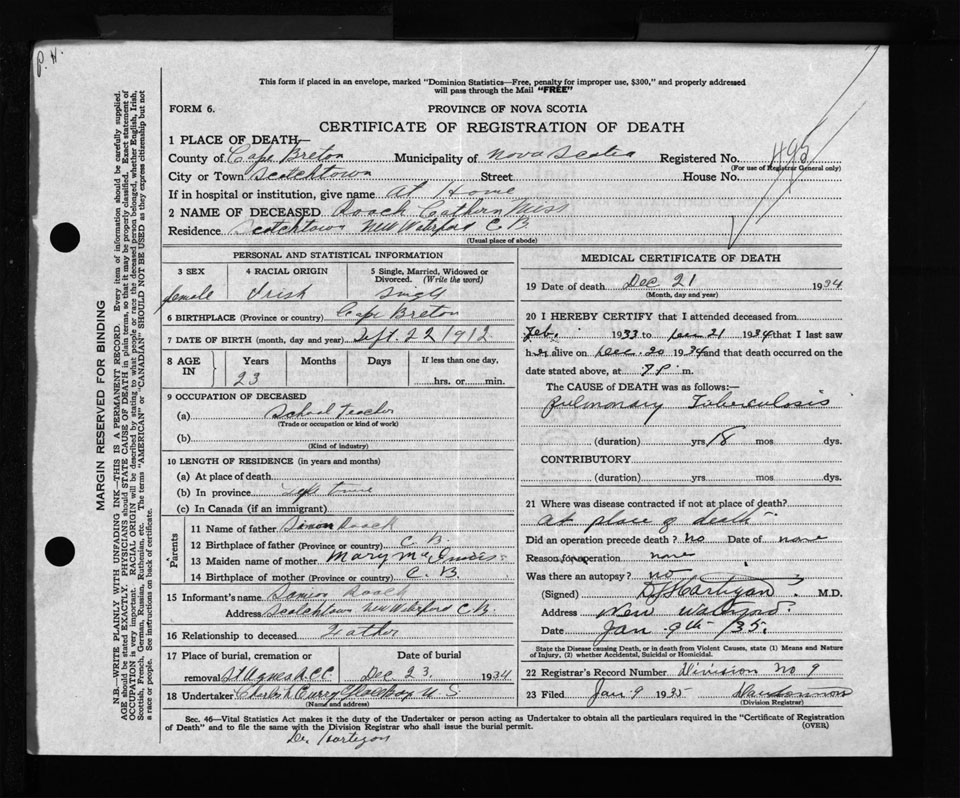 P. H.
This form if placed in an envelope, marked "Dominion Statistics—Free, penalty for improper use, $300," and properly addressed
will pass through the Mail "FREE"
FORM 6.
PROVINCE OF NOVA SCOTIA
CERTIFICATE OF REGISTRATION OF DEATH
1 PLACE OF DEATH—
County of Cape Breton Municipality of Nova Scotia Registered No. 495
(For use of Registrar General only)
City or Town Scotchtown Street House No.
If in hospital or institution, give name At Home
2 NAME OF DECEASED Roach Cathern Miss
Residence Scotchtown New Waterford C. B.
(Usual place of abode)
MARGIN RESERVED FOR BINDING
N.B.—WRITE PLAINLY WITH UNFADING INK—THIS IS A PERMANENT RECORD. Every item of information should be carefully supplied.
AGE should be stated EXACTLY. PHYSICIANS should STATE CAUSE OF DEATH in plain terms, so that it may be properly classified. Exact statement of
OCCUPATION is very important. RACIAL ORIGIN will be described by stating to what people or race the deceased person belonged, whether English, Irish,
Scottish, French, German, Russian, Ruthenian, etc. The terms "AMERICAN" or "CANADIAN" SHOULD NOT BE USED as they express citizenship but not
a race or people. See instructions on back of certificate.
PERSONAL AND STATISTICAL INFORMATION
3 SEX 4 RACIAL ORIGIN 5 Single, Married, Widowed or
Divorced. (Write the word)
female Irish Single
6 BIRTHPLACE (Province or country) Cape Breton
7 DATE OF BIRTH (month, day and year) Sept. 22 1912
8 AGE IN Years Months Days If less than one day,
23 hrs. or min.
9 OCCUPATION OF DECEASED
(a) School teacher
(Trade or occupation or kind of work)
(b)
(Kind of industry)
10 LENGTH OF RESIDENCE (in years and months)
(a) At place of death
(b) In province Life time
(c) In Canada (if an immigrant)
Parents
11 Name of father Simon Roach
12 Birthplace of father (Province or country) C. B.
13 Maiden name of mother Mary
14 Birthplace of mother (Province or country) C. B.
15 Informant's name Roach
Address Scotchtown New Waterford C.B.
16 Relationship to deceased Father
17 Place of burial, cremation or Date of burial
removal St Agnes Dec 23 1934
18 Undertaker Curry
(Name and address)
MEDICAL CERTIFICATE OF DEATH
19 Date of death Dec 21 1934
(Month, day and year)
20 I HEREBY CERTIFY that I attended deceased from
Feb. 1933 to Dec 21 1934 that I last saw
her alive on Dec. 20 1934 and that death occurred on the
date stated above, at 7 P. m.
The CAUSE of DEATH was as follows:—
Pulmonary Tuberculosis
(duration) yrs 18 mos dys.
CONTRIBUTORY
(duration) yrs. mos. dys.
21 Where was disease contracted if not at place of death?
At place of death
Did an operation precede death? no Date of none
Reason for operation none
Was there an autopsy? no
(Signed) Hartigan M.D.
Address New Waterford
Date Jan 9th /35.
State the Disease causing Death, or in death from Violent Causes, state (1) Means and Nature
of Injury, (2) whether Accidental, Suicidal or Homicidal.
22 Registrar's Record Number Division No 9
23 Filed Jan 9 1935
(Division Registrar)
Sec. 46—Vital Statistics Act makes it the duty of the Undertaker or person acting as Undertaker to obtain all the particulars required in the "Certificate of Registration
of Death" and to file the same with the Division Registrar who shall issue the burial permit.
(OVER)
Dr. Hartigan